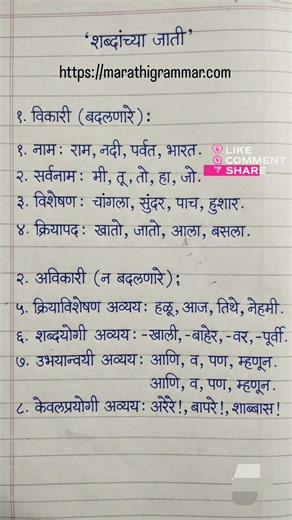 ‘शब्दांच्या जाती’
https://marathigrammar.com
१. विकारी (बदलणारे):
१. नामः राम, नदी, पर्वत, भारत.
२. सर्वनामः मी, तू, तो, हा, जो.
३. विशेषणः चांगला, सुंदर, पाच, हुशार.
४. क्रियापदः खातो, जातो, आला, बसला.
LIKE
COMMENT
SHARE
२. अविकारी (न बदलणारे);
५. क्रियाविशेषण अव्ययः हळू, आज, तिथे, नेहमी.
६. शब्दयोगी अव्ययः -खाली, -बाहेर, -वर, -पूर्वी.
७. उभयान्वयी अव्ययः आणि, व, पण, म्हणून.
आणि, व, पण, म्हणून.
८. केवलप्रयोगी अव्ययः अरेरे!, बापरे!, शाब्बास!